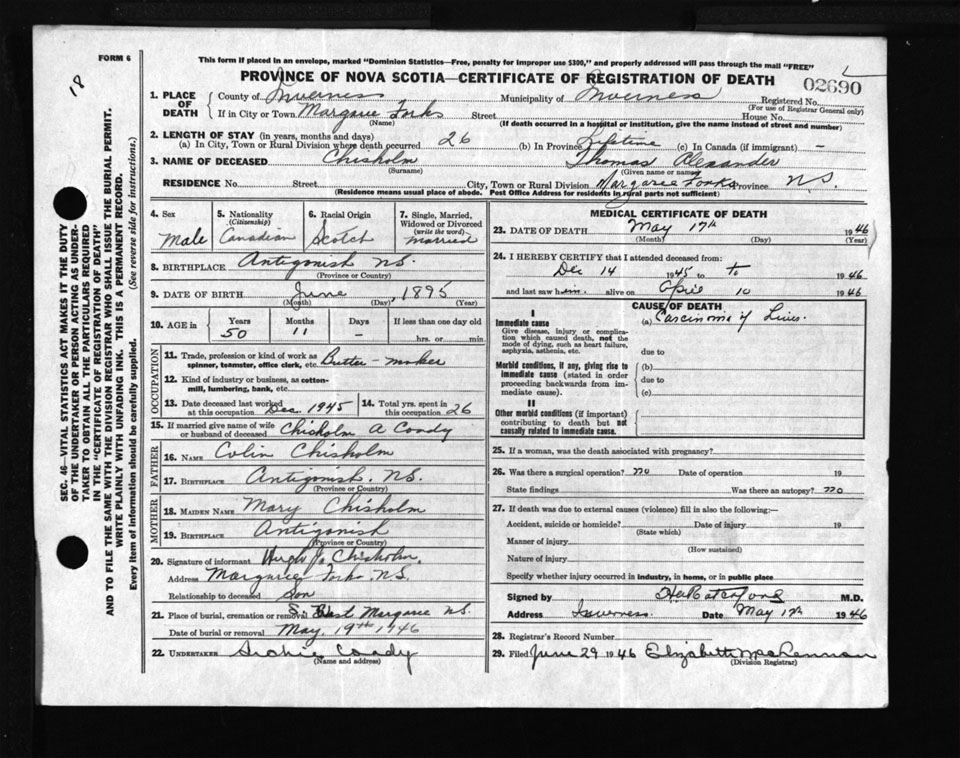 18
FORM 6
This form if placed in an envelope, marked "Dominion Statistics—Free, penalty for improper use $300," and properly addressed will pass through the mail "FREE"
PROVINCE OF NOVA SCOTIA—CERTIFICATE OF REGISTRATION OF DEATH
02690
SEC. 46—VITAL STATISTICS ACT MAKES IT THE DUTY
OF THE UNDERTAKER OR PERSON ACTING AS UNDER-
TAKER TO OBTAIN ALL THE PARTICULARS REQUIRED
IN THE "CERTIFICATE OF REGISTRATION OF DEATH"
AND TO FILE THE SAME WITH THE DIVISION REGISTRAR WHO SHALL ISSUE THE BURIAL PERMIT.
WRITE PLAINLY WITH UNFADING INK. THIS IS A PERMANENT RECORD.
Every item of information should be carefully supplied. (See reverse side for instructions.)
1. PLACE OF DEATH County of Inverness Municipality of Inverness Registered No.
(For use of Registrar General only)
If in City or Town Margaree Forks Street House No.
(Name) (If death occurred in a hospital or institution, give the name instead of street and number)
2. LENGTH OF STAY (in years, months and days)
(a) In City, Town or Rural Division where death occurred 26 (b) In Province Lifetime (c) In Canada (if immigrant) —
3. NAME OF DECEASED Chisholm Thomas Alexander
(Surname) (Given name or names)
RESIDENCE No. Street City, Town or Rural Division Margaree Forks Province N.S.
(Residence means usual place of abode. Post Office Address for residents in rural parts not sufficient)
4. Sex
Male
5. Nationality
(Citizenship)
Canadian
6. Racial Origin
Scotch
7. Single, Married, Widowed or Divorced
(write the word)
Married
8. BIRTHPLACE Antigonish N.S.
(Province or Country)
9. DATE OF BIRTH June 1895
(Month) (Day) (Year)
10. AGE in Years Months Days If less than one day old
50 11 – hrs. or min.
OCCUPATION
11. Trade, profession or kind of work as spinner, teamster, office clerk, etc. Butter-maker
12. Kind of industry or business, as cotton-mill, lumbering, bank, etc.
13. Date deceased last worked at this occupation Dec. 1945
14. Total yrs. spent in this occupation 26
15. If married give name of wife or husband of deceased Chisholm A Coady
FATHER
16. NAME Colin Chisholm
17. BIRTHPLACE Antigonish. N.S.
(Province or Country)
MOTHER
18. MAIDEN NAME Mary Chisholm
19. BIRTHPLACE Antigonish
(Province or Country)
20. Signature of informant Hugh J. Chisholm.
Address Margaree Forks N.S.
Relationship to deceased Son
21. Place of burial, cremation or removal S. West Margaree N.S.
Date of burial or removal May, 19th 1946
22. UNDERTAKER Archie Coady
(Name and address)
MEDICAL CERTIFICATE OF DEATH
23. DATE OF DEATH May 17th 1946
(Month) (Day) (Year)
24. I HEREBY CERTIFY that I attended deceased from:
Dec 14 1945 to to 1946
and last saw him alive on April 10 1946
CAUSE OF DEATH
I
Immediate cause (a) Carcinoma of Liver.
Give disease, injury or complica-
tion which caused death, not the
mode of dying, such as heart failure,
asphyxia, asthenia, etc. due to
Morbid conditions, if any, giving rise to (b)
immediate cause (stated in order due to
proceeding backwards from im-
mediate cause). (c)
II
Other morbid conditions (if important)
contributing to death but not
causally related to immediate cause.
25. If a woman, was the death associated with pregnancy?
26. Was there a surgical operation? no Date of operation 19
State findings Was there an autopsy? no
27. If death was due to external causes (violence) fill in also the following:—
Accident, suicide or homicide? Date of injury 19
(State which)
Manner of injury
(How sustained)
Nature of injury
Specify whether injury occurred in industry, in home, or in public place
Signed by M.D.
Address Inverness. Date May 17th 1946
28. Registrar's Record Number
29. Filed June 29 1946 Elizabeth McLennan
(Division Registrar)